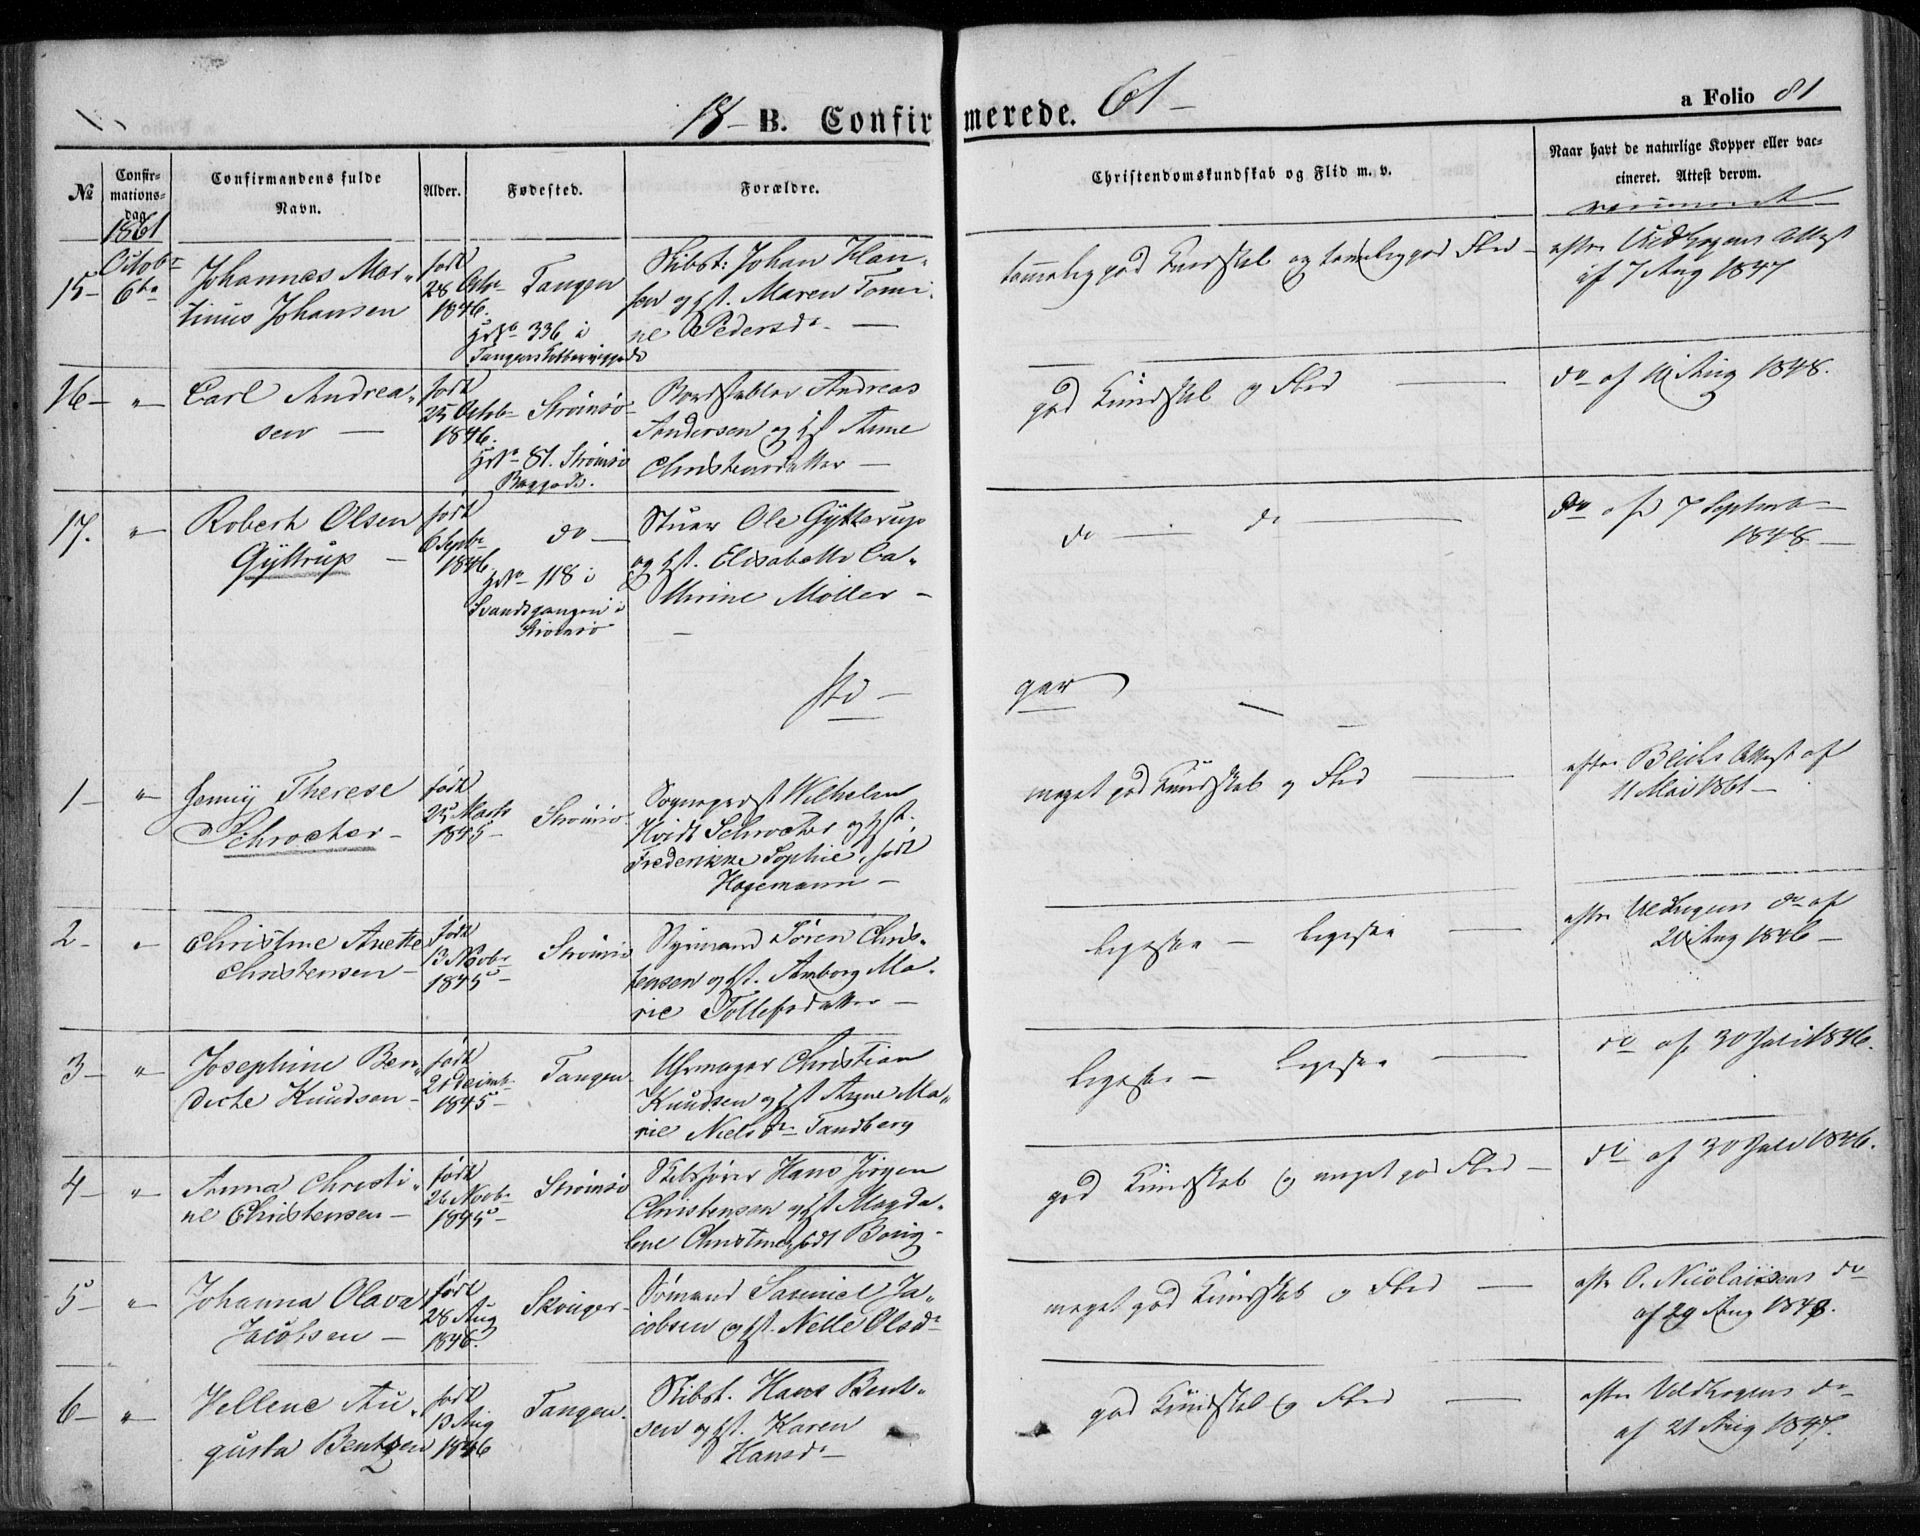 18 - B. Confirmerede. 61 -
a Folio 81
№
Confir-
mations-
dag
Confirmandens fulde
Navn.
Alder.
Fødested.
Forældre.
Christendomskundskab og Flid m. v.
Naar havt de naturlige Kopper eller vac-
cineret. Attest derom.
1861
vaccineret
15 -
Octobr
6te
Johannes Mar-
tinus Johansen
født
28 Octbr
1846.
Tangen
Hs No 336 i
Skibst: Johan Han-
sen og Hst. Maren Tomi-
ne Pedersdr -
temmelig god Kundskab og temmelig god Flid -
efter Uldhogens Attest
af 7 Aug 1847
16 -
"
Carl Andrea-
sen -
født
25 Octob
1846.
Strømsø
Hs No 81. Strømsø
Baggade.
Bordstabler Andreas
Andersen og Hst Anne
Christensdatter -
god Kundskab og Flid -
do af 10 Aug 1848.
17.
"
Robert Olsen
Gyttrup -
født
6 Septbr
1846
do -
Hs No 118 i
Svendsgangen i
Strømsø
Stuer Ole Gytterup
og Hst. Elisabeth Ca-
thrine Møller -
do - do -
do af 7 Septemb
1848 -
Pi - ger
1 -
"
Jenny Therese
Schroeter -
født
25 Marts
1845 -
Strømsø
Sognepræst Wilhelm
Hvidt Schroeter og Hst.
Frederikke Sophie, født
Hagemann -
meget god Kundskab og Flid -
efter Bleichs Attest af
11 Mai 1861 -
2 -
"
Christine Anette
Christensen -
født
13 Novbr
1845 -
Strømsø
Styrmand Søren Chris-
tensen og Hst. Amborg Ma-
rie Tollefsdatter -
ligeså - ligeså -
efter Uldhogens do af
20 Aug 1846 -
3 -
"
Josephine Ben-
dicte Knudsen -
født
21 Decemb
1845 -
Tangen
Uhrmager Christian
Knudsen og Hst Anne Ma-
rie Nielsdr Tandberg
ligeså - ligeså -
do af 30 Juli 1846.
4 -
"
Anna Christi-
ne Christensen -
født
26 Novbr
1845 -
Strømsø
Skibsfører Hans Jörgen
Christensen og Hst Magda-
lene Christine født Boing -
god Kundskab og meget god Flid -
do af 30 Juli 1846.
5 -
"
Johanna Olava
Jacobsen -
født
28 Aug
1846.
Skouger -
Sømand Samuel Ja-
cobsen og Hst. Nelle Olsdr
meget god Kundskab og Flid -
efter O. Nicolaisens do
af 29 Aug 1848.
6 -
"
Hellene Au-
gusta Bentzen
født
13 Aug
1846
Tangen
Skibst. Hans Bent-
sen og Hst. Karen
Hansdr -
god Kundskab og Flid -
efter Uldhogens do
af 21 Aug 1847.